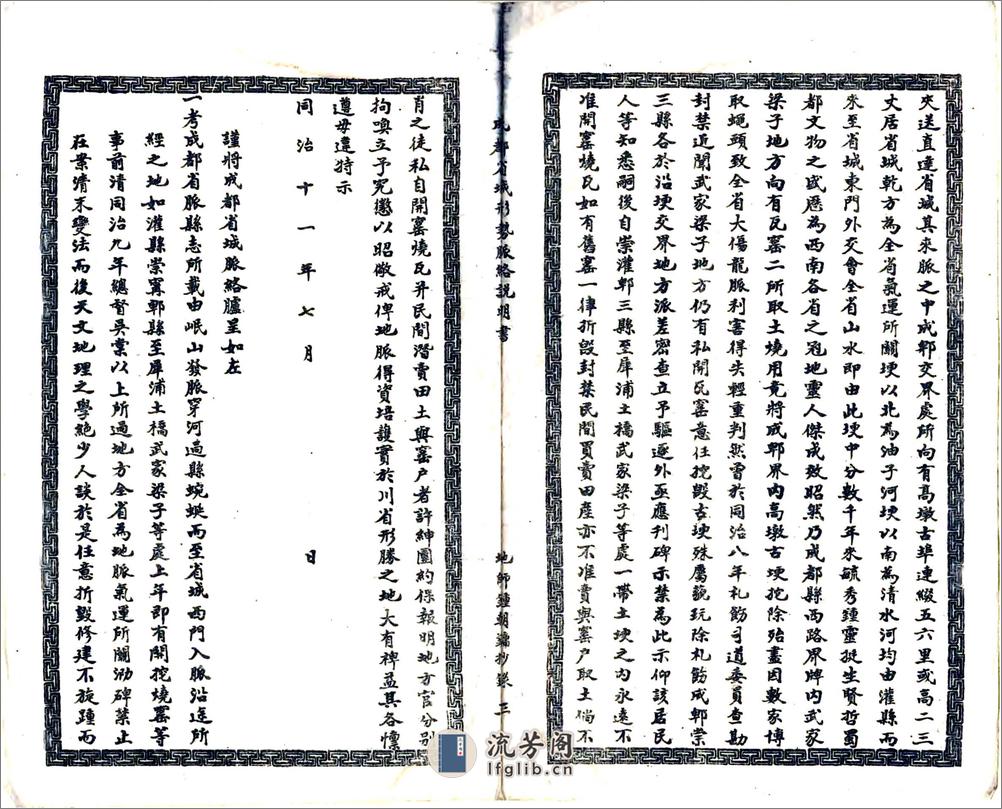 夾送直達省城其來脉之中成郫交界處所向有高墩古埠連綴五六里或高二三
丈居省城乾方為全省氣運所關埂以北為油子河埂以南為清水河均由灌縣而
來至省城東門外交會全省山水即由此埂中分數千年來毓秀鍾靈挺生賢哲蜀
都文物之盛歷為西南各省之冠地靈人傑成效昭然乃成都縣西路界牌內武家
梁子地方向有瓦窰二所取土燒用竟將成郫界內高墩古埂挖除殆盡因數家博
取蠅頭致全省大傷龍脉利害得失輕重判然曾於同治八年札飭司道委員查勘
封禁近聞武家梁子地方仍有私開瓦窰意任挖毀古埂殊屬藐玩除札飭成郫崇
三縣各於沿埂交界地方派差密查立予驅逐外亟應刊碑示禁為此示仰該居民
人等知悉嗣後自崇灌郫三縣至犀浦土橋武家梁子等處一帶土埂之內永遠不
准開窰燒瓦如有舊窰一律折毀封禁民間買賣田產亦不准賣與窰户取土倘不
成都省城形勢脈絡説明書
地師鍾朝滽抄錄 三
肖之徒私自開窰燒瓦并民間潛賣田土與窰户者許紳團約保報明地方官分别
拘喚立予究懲以昭儆戒俾地脈得資培護實於川省形勝之地大有裨益其各懍
遵毋違特示
同治十一年七月 日
謹將成都省城脈絡臚呈如左
一考成都省脈縣志所載由岷山發脈穿河過縣蜿蜒而至省城西門入脈沿途所
經之地如灌縣崇寗郫縣至犀浦土橋武家梁子等處上年即有開挖燒窰等
事前清同治九年總督吳棠以上所過地方全省為地脈氣運所關泐碑禁止
在案清末變法而後天文地理之學絶少人談於是任意折毀修建不旋踵而
流芳阁
lfglib.cn